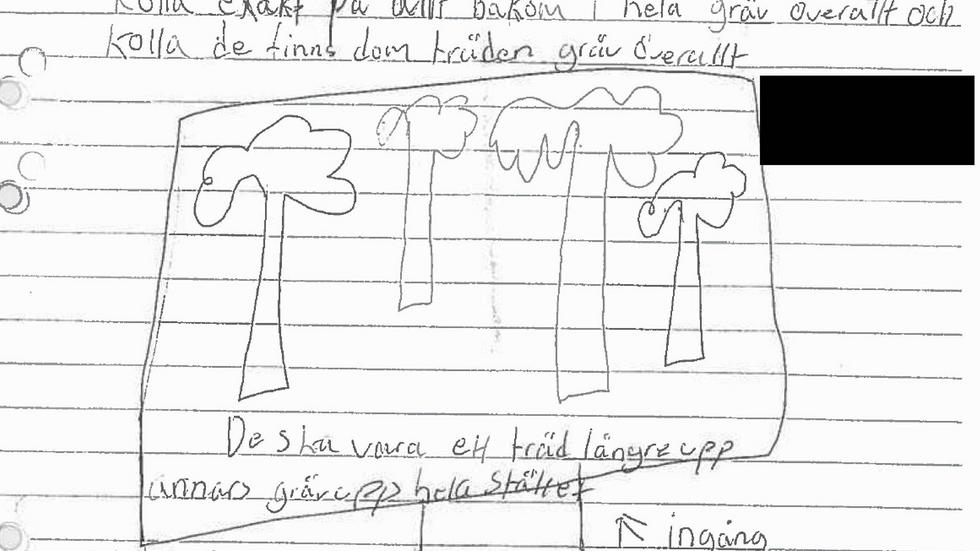 Kolla exakt på allt bakom i hela gräv överallt och
Kolla de finns dom träden gräv överallt
De ska vara ett träd längre upp
annars gräv upp hela stället
ingång